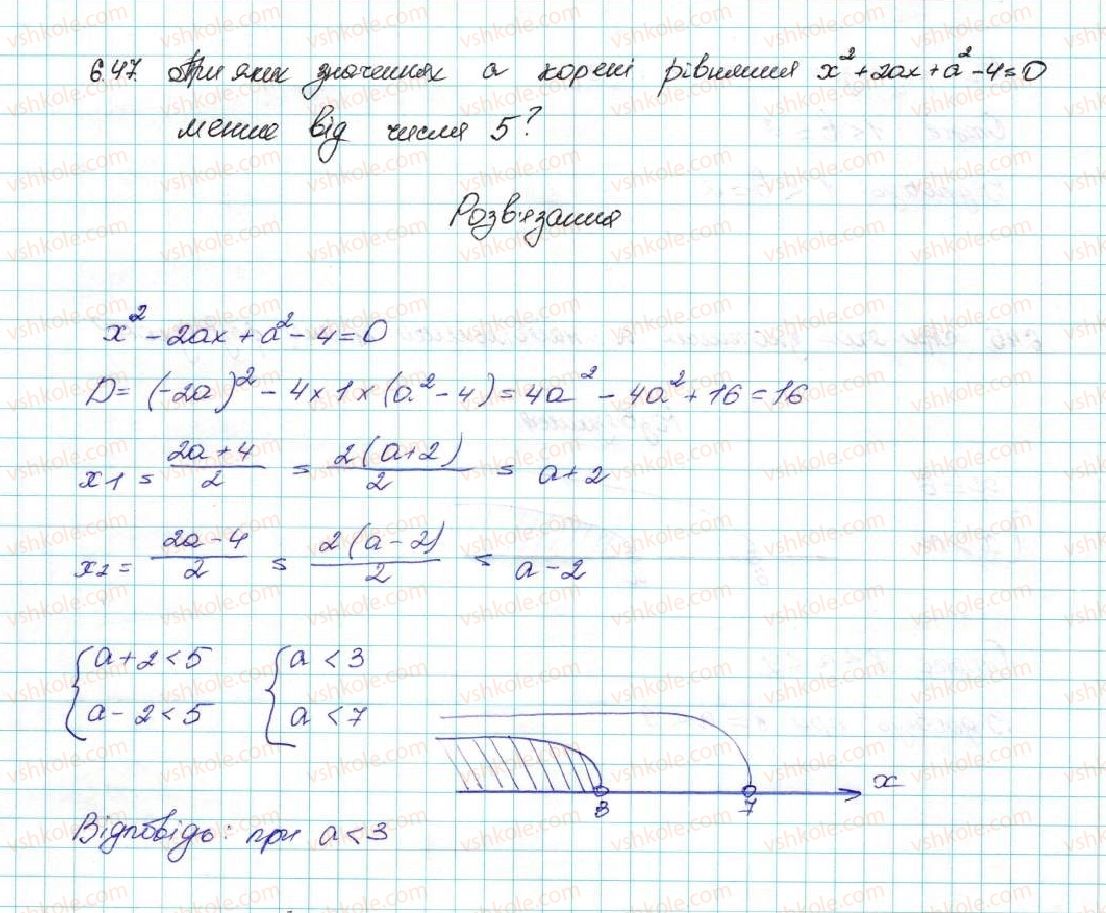 6.47. При яких значеннях a корені рівняння x²+2ax+a²-4=0
менше від числа 5?
Розв'язання
x²-2ax+a²-4=0
D=(-2a)²-4×1×(a²-4)=4a²-4a²+16=16
x1 = (2a+4)/2 = 2(a+2)/2 = a+2
x2 = (2a-4)/2 = 2(a-2)/2 = a-2
{a+2<5 {a<3
{a-2<5 {a<7
x
3 7
Відповідь: при a<3